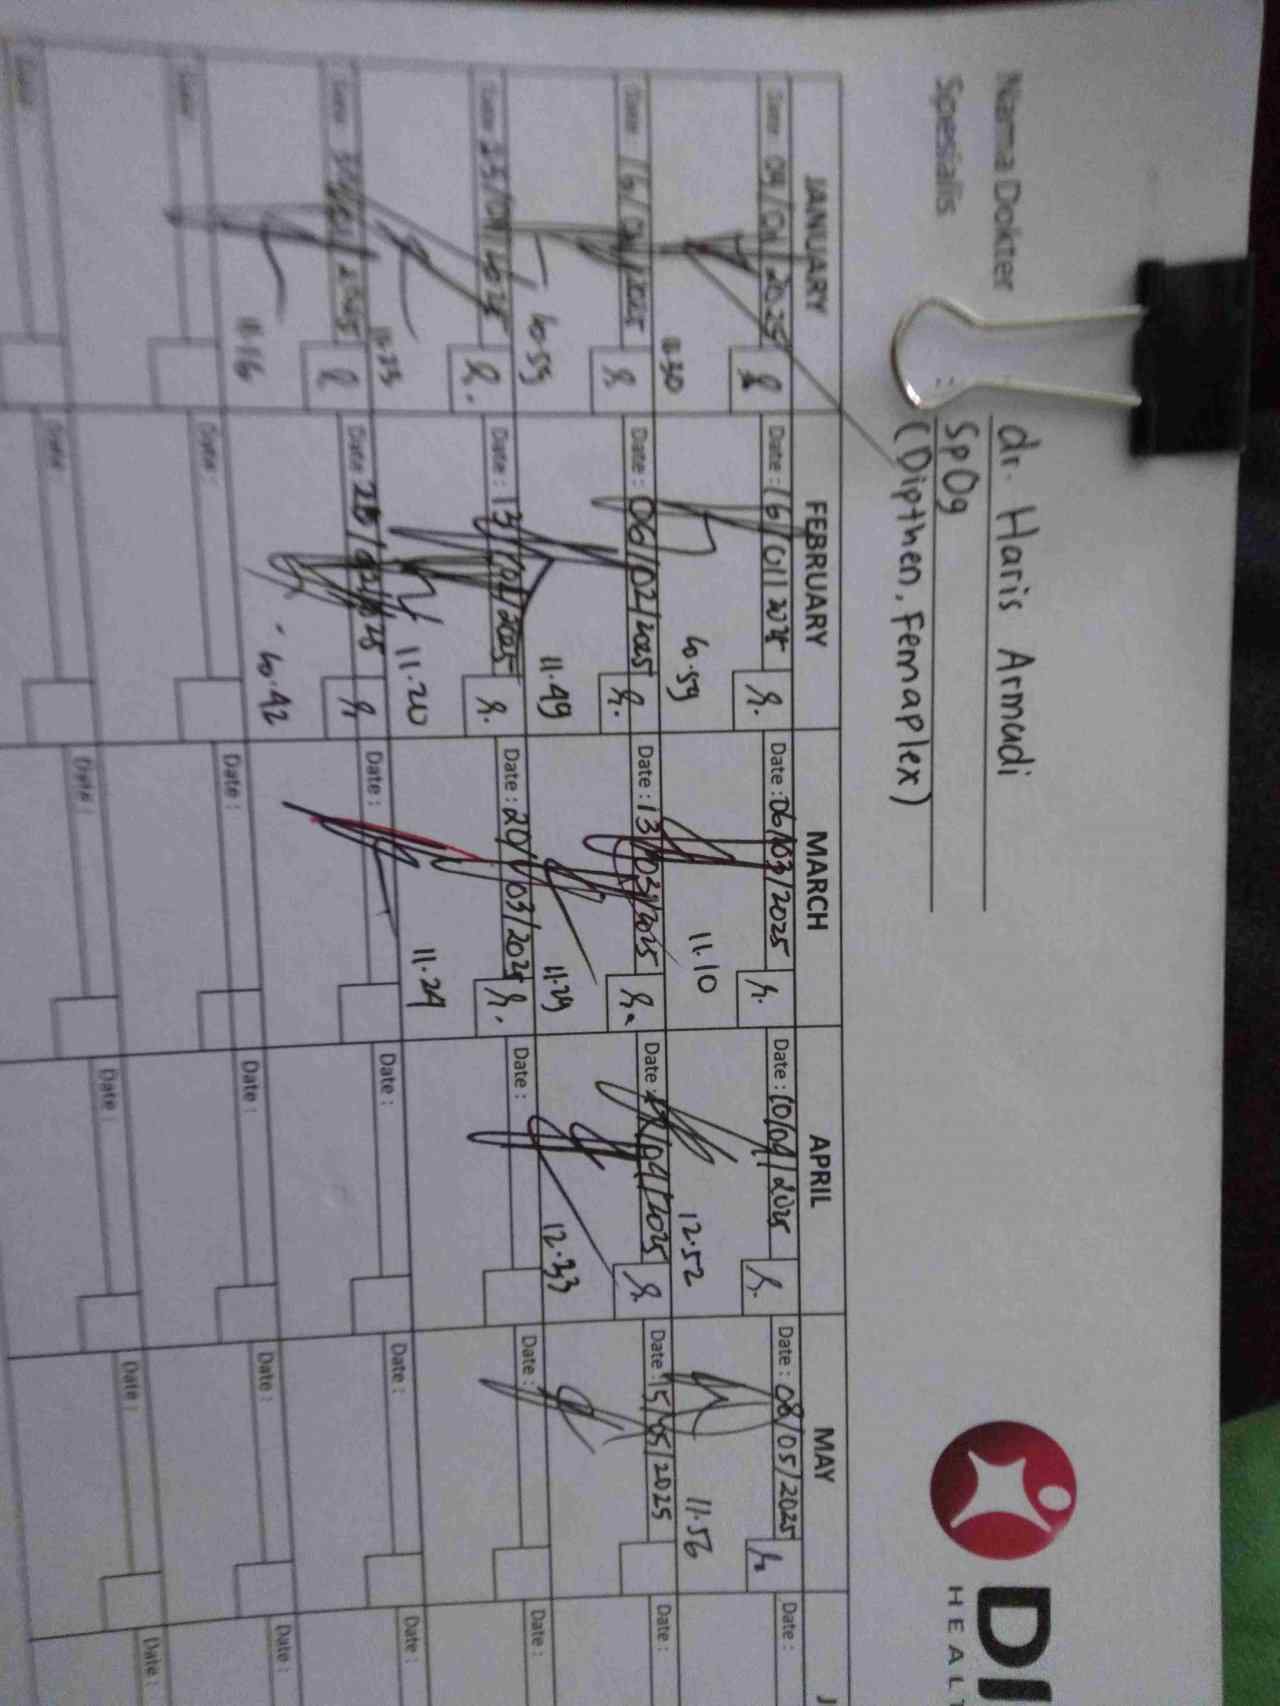 Nama Dokter : dr. Haris Armudi
Spesialis : SpOg
(Dipthen, Femaplex)
DI
HEALT
JANUARY FEBRUARY MARCH APRIL MAY J
Date : 09/01/2025 Date : 16/01/2025 Date : 06/03/2025 Date : 10/04/2025 Date : 08/05/2025 Date :
11.30 10.59 11.10 12.52 11.56
Date : 16/01/2025 Date : 06/02/2025 Date : 13/03/2025 Date : /04/2025 Date : 15/05/2025 Date :
10.59 11.49 11.29 12.33
Date : 23/01/2025 Date : 13/02/2025 Date : 20/03/2025 Date : Date : Date :
11.23 11.20 11.24
Date : Date : Date : Date : Date : Date :
11.16 10.42
Date : Date : Date : Date : Date : Date :
Date : Date : Date : Date : Date : Date :